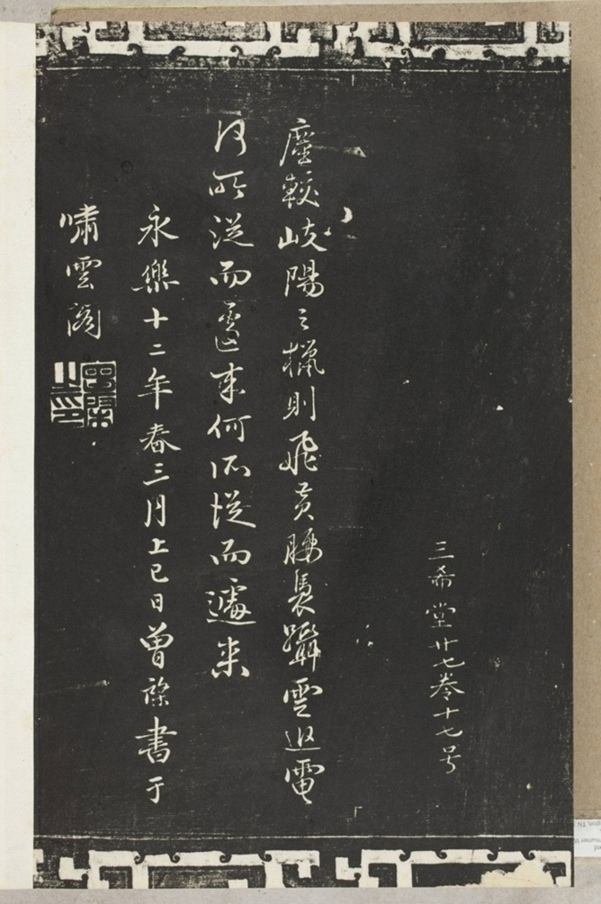 三希堂廿七卷十七号
塵較岐陽之獵則飛黃腰褭躡雲追電
所從而来何所從而遽来
永樂十二年春三月上巳日曾棨書于
嘯雲閣